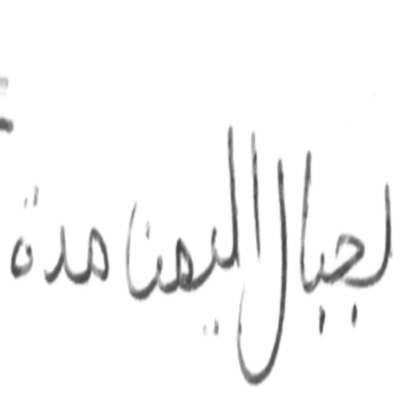 لجبال اليمن مدة